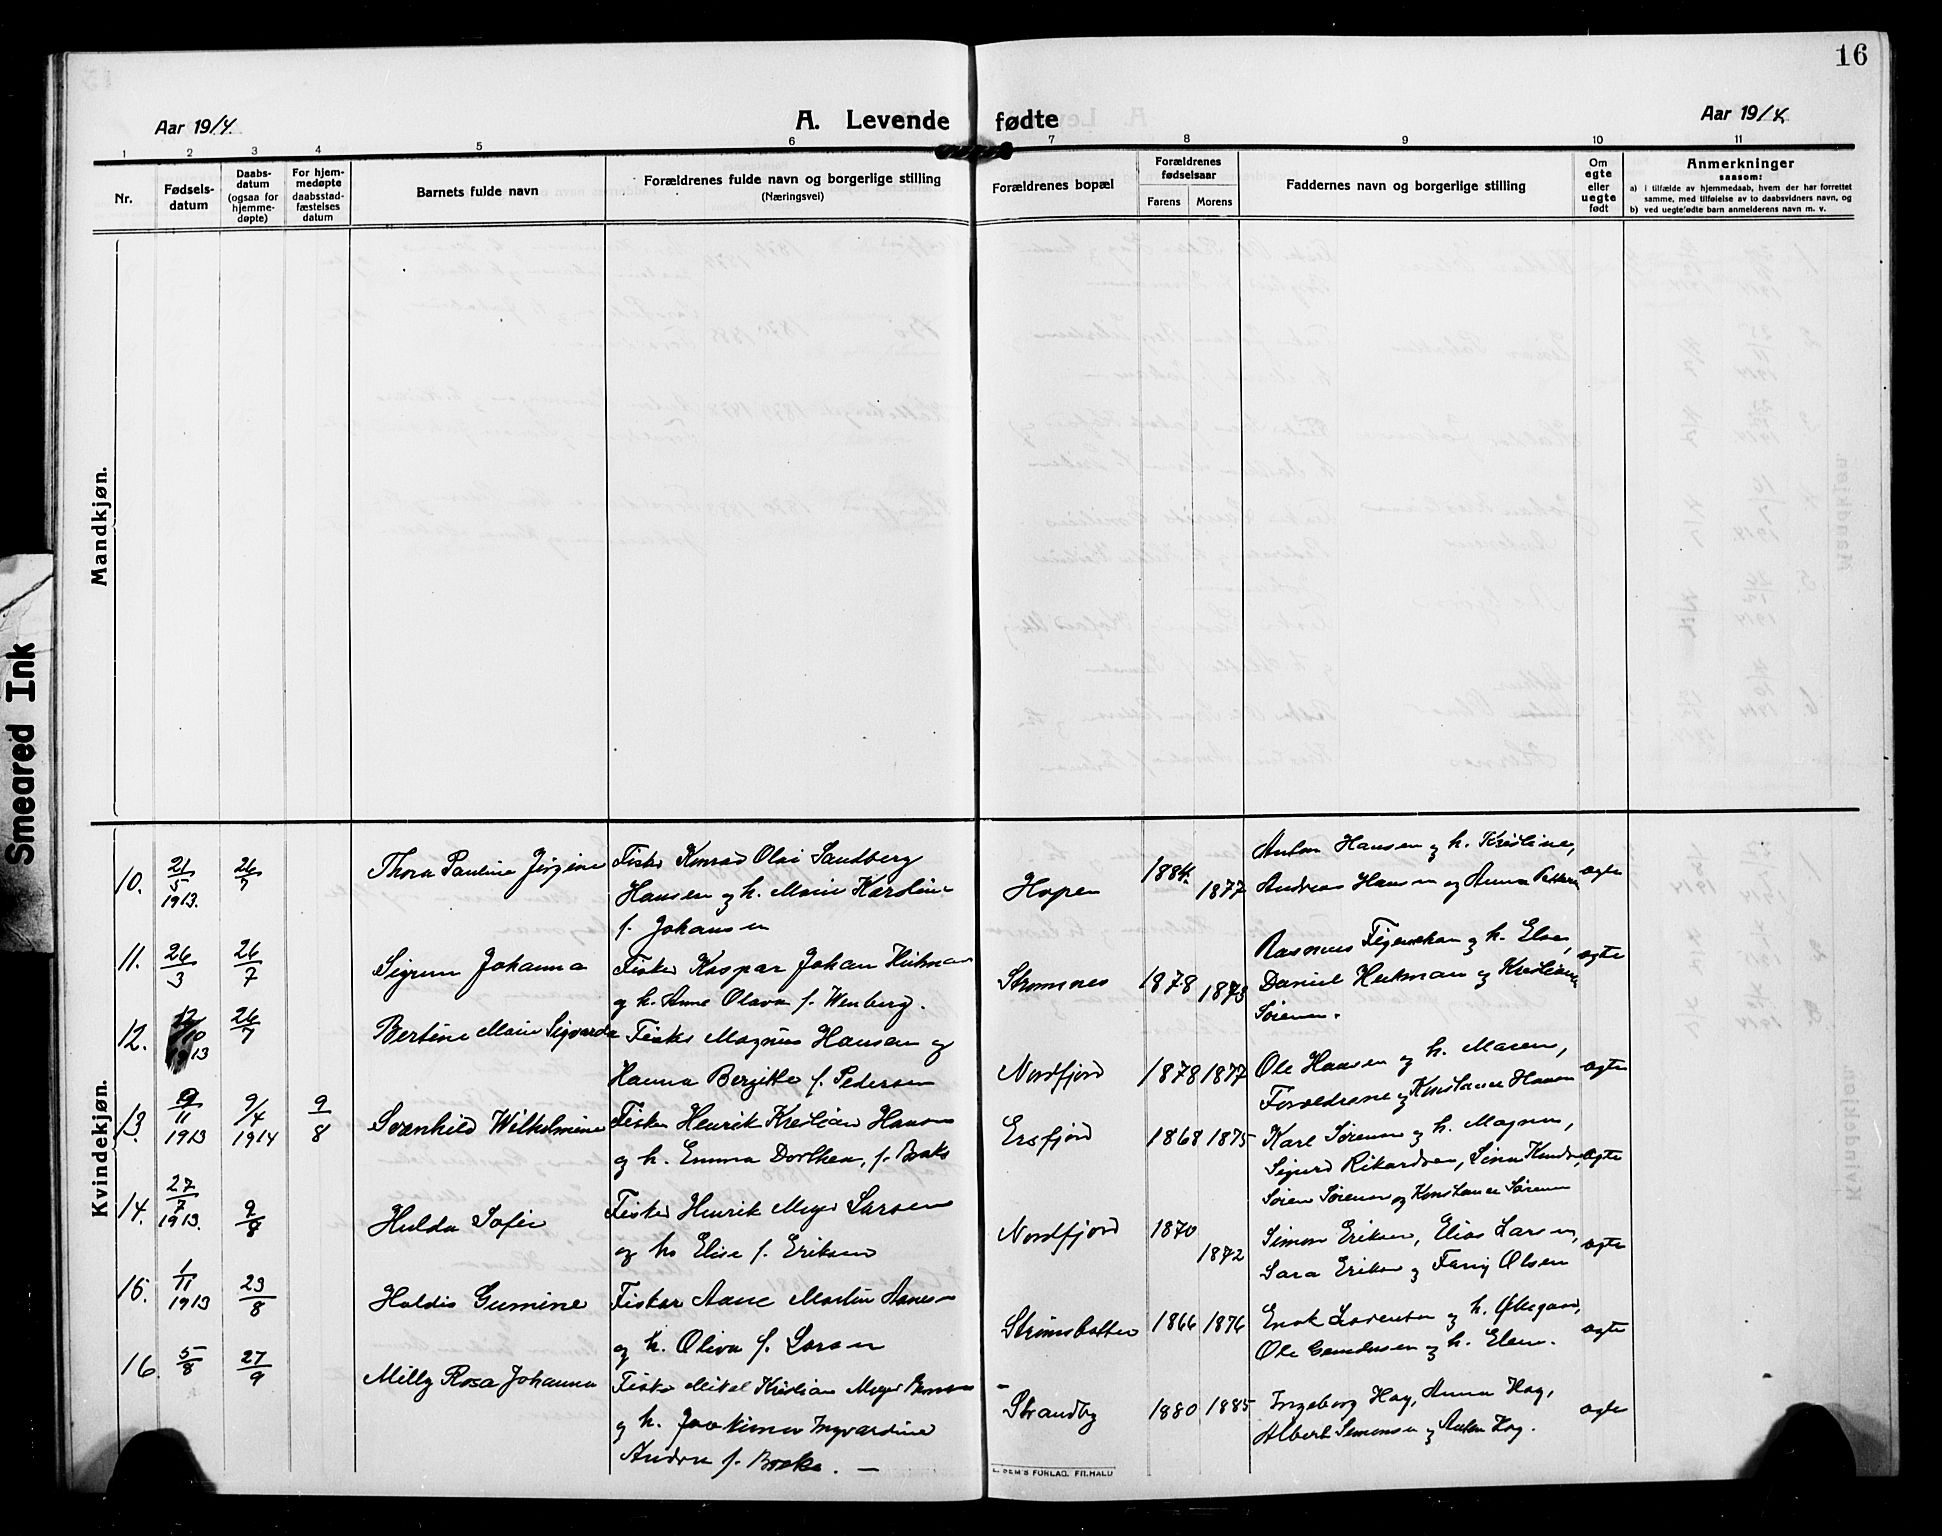 16
Aar 1914
A. Levende fødte
Aar 1914
1 2 3 4 5 6 7 8 9 10 11
Nr.
Fødsels-
datum
Daabs-
datum
(ogsaa for
hjemme-
døpte)
For hjem-
medøpte
daabsstad-
fæstelses
datum
Barnets fulde navn
Forældrenes fulde navn og borgerlige stilling
(Næringsvei)
Forældrenes bopæl
Forældrenes
fødselsaar
Farens Morens
Faddernes navn og borgerlige stilling
Om
egte
eller
uegte
født
Anmerkninger
saasom:
a) i tilfælde av hjemmedaab, hvem der har forrettet
samme, med tilføielse av to daabsvidners navn, og
b) ved uegtefødte barn anmelderens navn m. v.
Mandkjøn.
Smeared Ink
Kvindekjøn.
10. 21/5 1913. 26/7 Thora Pauline Jørgine
Fisker Konrad Olai Sandberg
Hansen og h. Marie Karoline
f. Johansen
Hopen 1884. 1877
Anton Hansen og h. Kristine,
Andreas Hansen og Anna Pettersen
egte
11. 26/3 26/7 Sigrun Johanna
Fisker Kaspar Johan Heikman
og h. Anne Olava f. Wenberg.
Strømsnes 1878 1873
Rasmus Figenschau og h. Elen,
Daniel Heikman og Kristiane
Sørensen.
egte
12. 12/10 1913 26/7 Bertine Marie Sigvarda
Fisker Magnus Hansen og
Hanna Bergitte f. Pedersen
Nordfjord 1878 1877
Ole Hansen og h. Maren,
Forældrene og Konstance Hansen
egte
13. 9/11 1913 9/4 1914 9/8 Svanhild Wilhelmine
Fisker Henrik Kristian Hansen
og h. Emma Dorthea, f. Baks
Ersfjord 1868 1875
Karl Sørensen og h. Magna,
Sigurd Rikardsen, Lina Knudsen,
Søren Sørensen og Konstance Sørensen
egte
14. 27/7 1913. 9/8 Hulda Sofie
Fisker Henrik Meyer Larsen
og h. Elise f. Eriksen
Nordfjord 1870 1872
Simon Eriksen, Elias Larsen,
Sara Eriksen og Fanny Olsen
egte
15. 1/11 1913 23/8 Haldis Gumine
Fisker Aane Martin Aanesen
og h. Oliva f. Larsen
Strømsbotten 1866 1876
Enok Lorentsen og h. Økegaa,
Ole Gunduesen og h. Elen.
egte
16. 5/8 27/9 Milly Rosa Johanna
Fisker Mikal Kristian Meyer
og h. Joakima Ingvardine
Andrea f. Bakke. —
Strandby 1880 1885
Ingeborg Hog, Anna Hog,
Albert Simonsen og Anton Hog.
egte
SEM'S FORLAG, FR.HALD